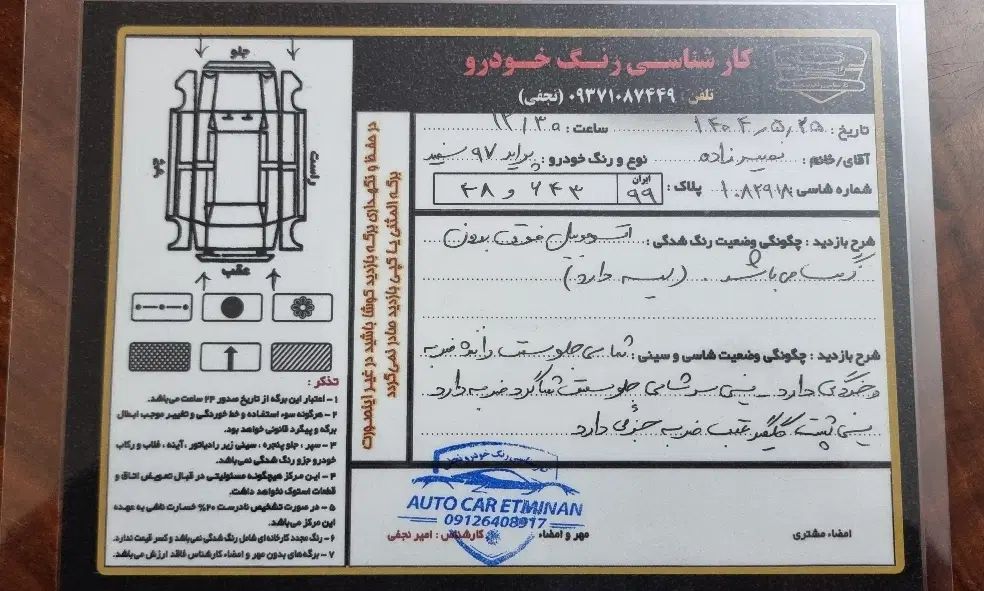 کارشناسی رنگ خودرو
تلفن : ۰۹۳۷۱۰۸۷۴۴۹ (نجفی)
تاریخ : ۱۴۰۴/۵/۲۵ ساعت : ۱۲/۳۰
آقای/خانم : نوع و رنگ خودرو : پراید ۹۷ سفید
شماره شاسی : ۱۰۸۲۹۱۸ پلاک : ایران ۹۹ ۶۴۳ و ۴۸
شرح بازدید : چگونگی وضعیت رنگ شدگی : اتومبیل فوق بدون
رنگ می باشد . (لیسه دارد)
شرح بازدید : چگونگی وضعیت شاسی و سینی : شاسی جلو سمت راننده ضربه
و خوردگی دارد . سینی سر شاسی جلو سمت شاگرد ضربه دارد
سینی پشت گلگیر عقب ضربه جزئی دارد
امضاء مشتری
مهر و امضاء کارشناس : امیر نجفی
کارشناسی رنگ خودرو نجفی
AUTO CAR ETMINAN
09126408917
در حفظ و نگهداری برگه بازدید کوشا باشید در غیر اینصورت
برگه المثنی یا کپی بازدید صادر نمی‌گردد
جلو
چپ
راست
عقب
تذکر :
۱ - اعتبار این برگه از تاریخ صدور ۲۴ ساعت می‌باشد.
۲ - هرگونه سوء استفاده و خط خوردگی و تغییر موجب ابطال
برگه و پیگرد قانونی خواهد بود.
۳ - سپر ، جلو پنجره ، سینی زیر رادیاتور ، آینه ، قالپاق و رکاب
خودرو جزو رنگ شدگی نمی‌باشد.
۴ - این مرکز هیچگونه مسئولیتی در قبال تعویض اتاق و
قطعات استوک نخواهد داشت.
۵ - در صورت تشخیص نادرست ۲۰% خسارت ناشی به عهده
این مرکز می‌باشد.
۶ - رنگ مجدد کارخانه‌ای شامل رنگ شدگی نمی‌باشد و کسر قیمت ندارد.
۷ - برگه‌های بدون مهر و امضاء کارشناس فاقد ارزش می‌باشد.